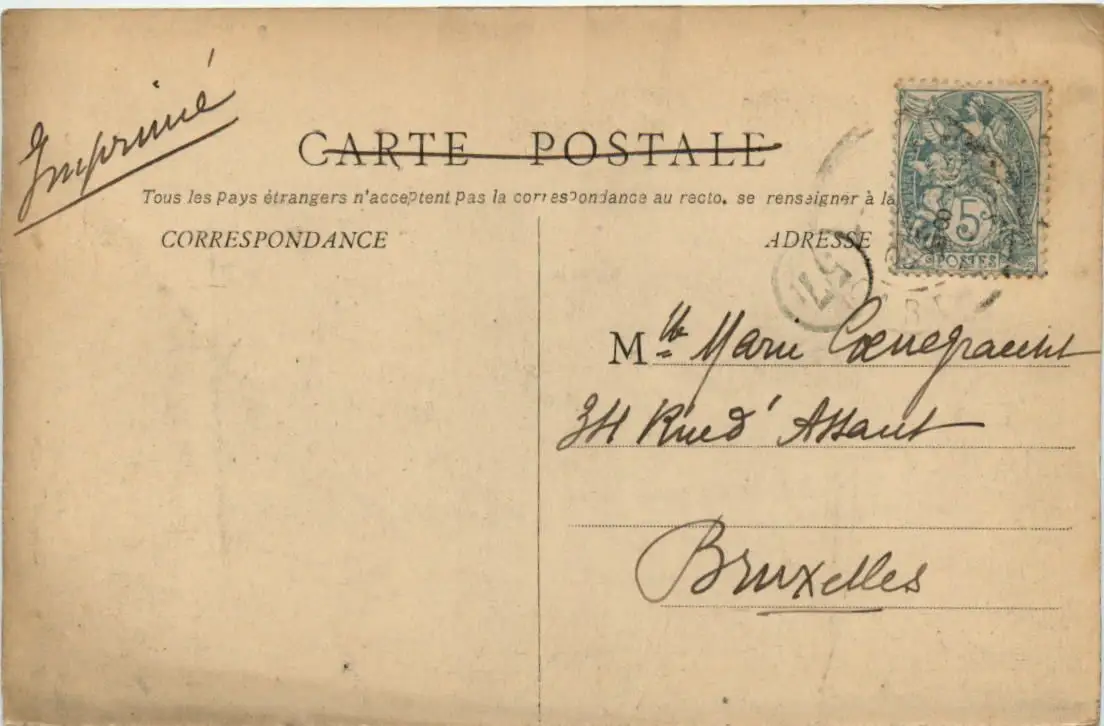 Imprimé
CARTE POSTALE
Tous les pays étrangers n'acceptent pas la correspondance au recto, se renseigner à la
CORRESPONDANCE
ADRESSE
5
POSTES
Mlle Marie
34 Rue d'Assaut
Bruxelles